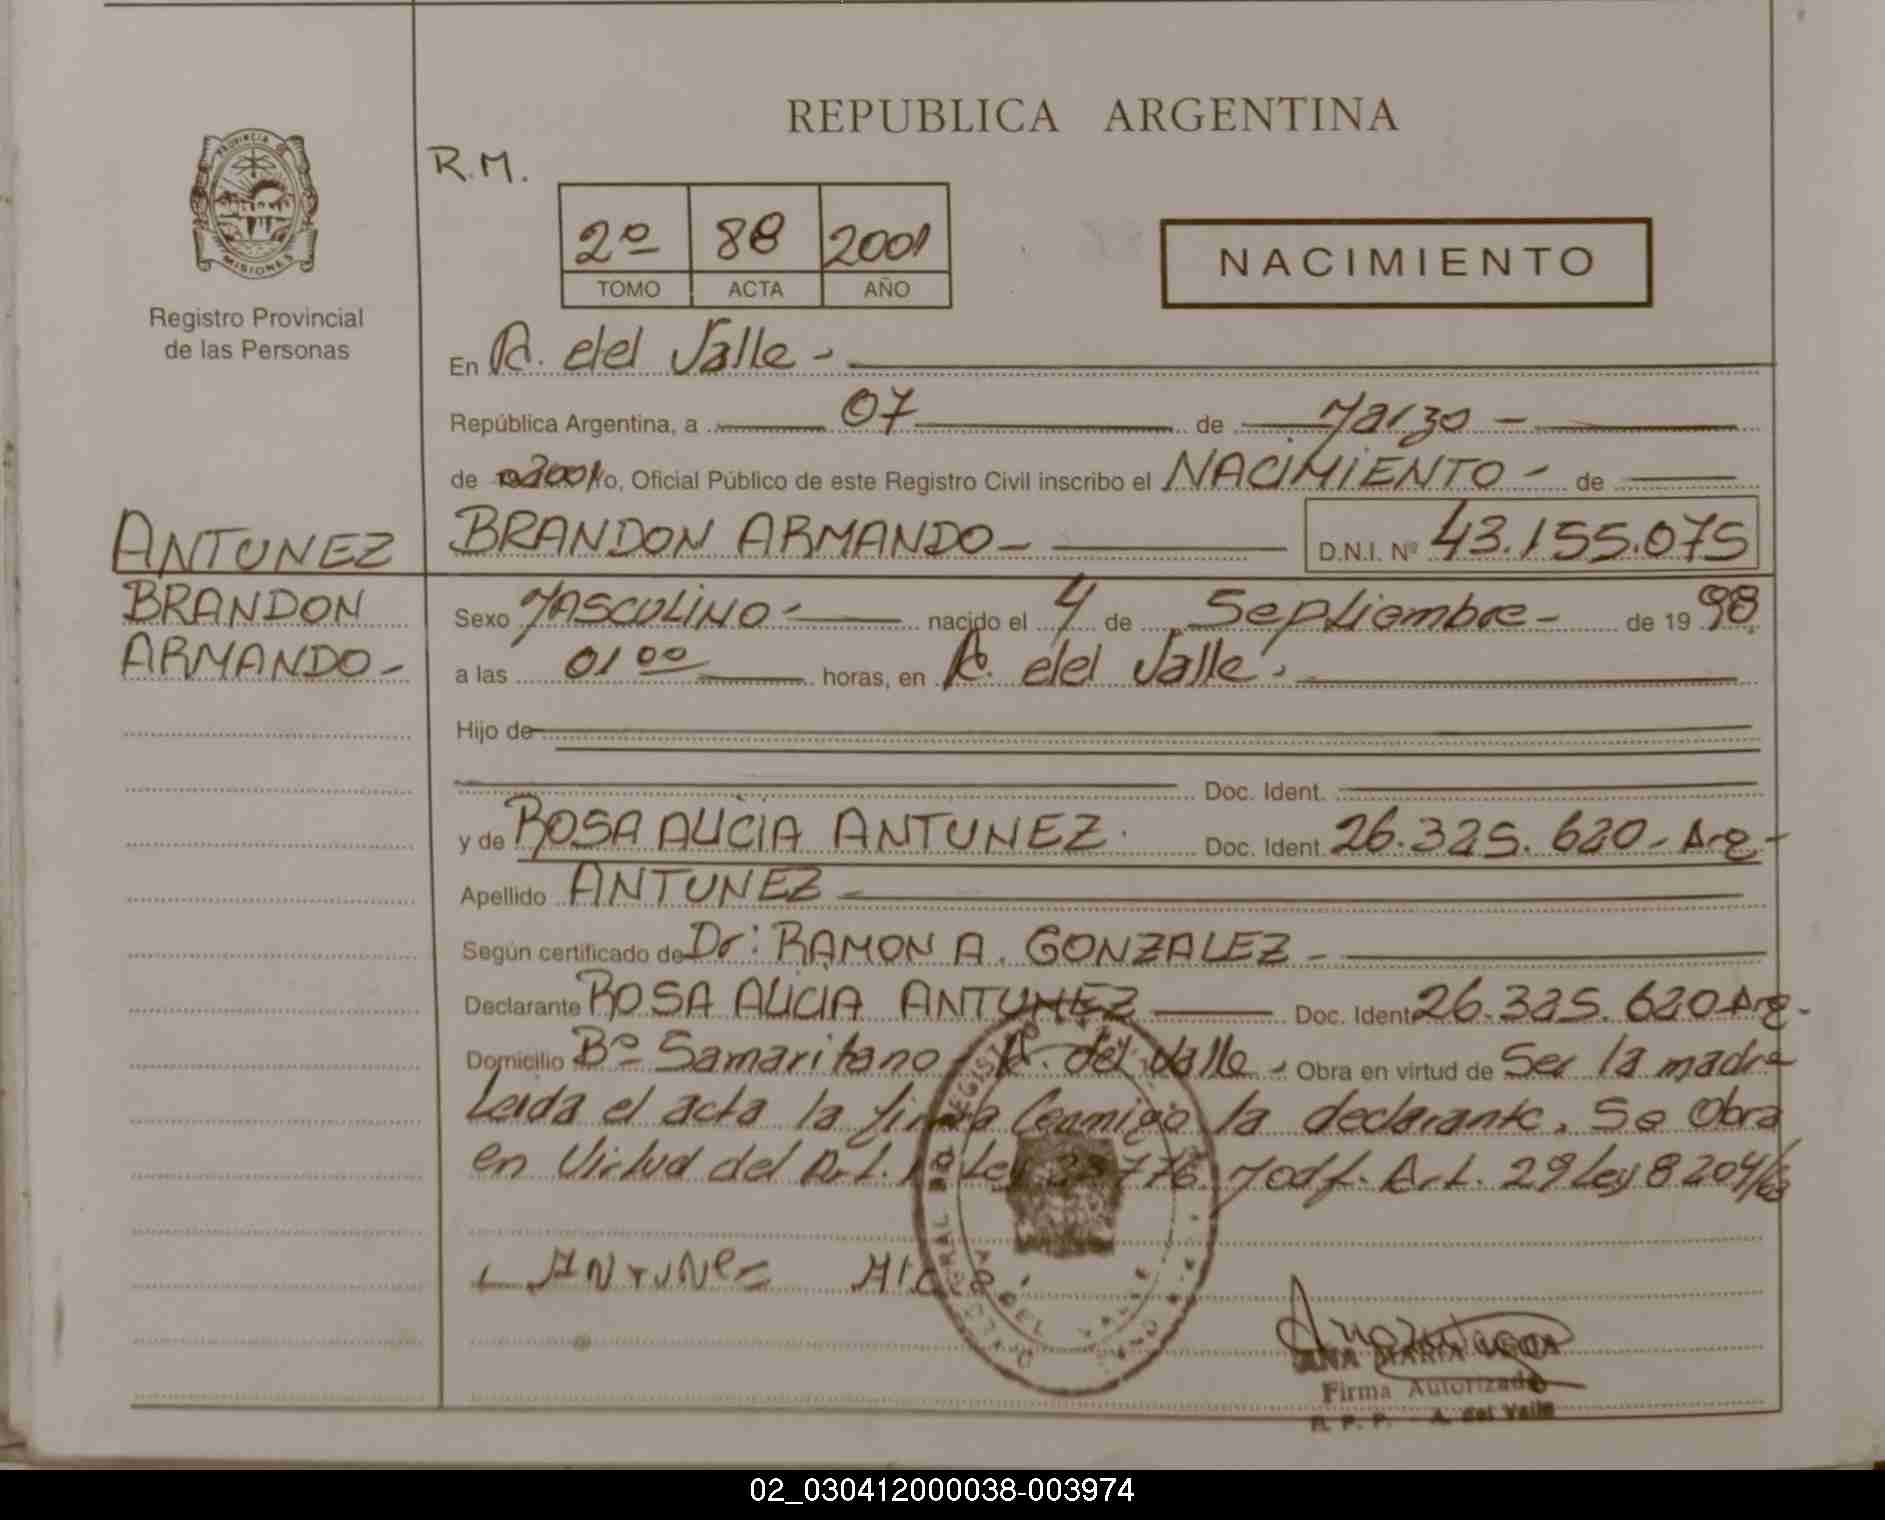 REPUBLICA ARGENTINA
PROVINCIA DE
MISIONES
Registro Provincial
de las Personas
R.M.
2º 88 2001
TOMO ACTA AÑO
NACIMIENTO
En A. del Valle -
República Argentina, a 07 de Marzo -
de 2001 yo, Oficial Público de este Registro Civil inscribo el NACIMIENTO - de
ANTUNEZ BRANDON ARMANDO - D.N.I. Nº 43.155.075
BRANDON
ARMANDO -
Sexo MASCULINO - nacido el 4 de Septiembre - de 19 98
a las 01 00 horas, en A. del Valle -
Hijo de
Doc. Ident.
y de ROSA ALICIA ANTUNEZ. Doc. Ident. 26.325.620 - Arg -
Apellido ANTUNEZ -
Según certificado de Dr: RAMON A. GONZALEZ -
Declarante ROSA ALICIA ANTUNEZ Doc. Ident. 26.325.620 Arg -
Domicilio Bº Samaritano - A. del Valle - Obra en virtud de Ser la madre
Leida el acta la firma Conmigo la declarante. Se Obra
en Virtud del Art. Ley 23776. Modf. Art. 29 Ley 8204/63
ANTUNez
ANA MARIA
Firma Autorizada
R. P. P. - A. del Valle
02_030412000038-003974